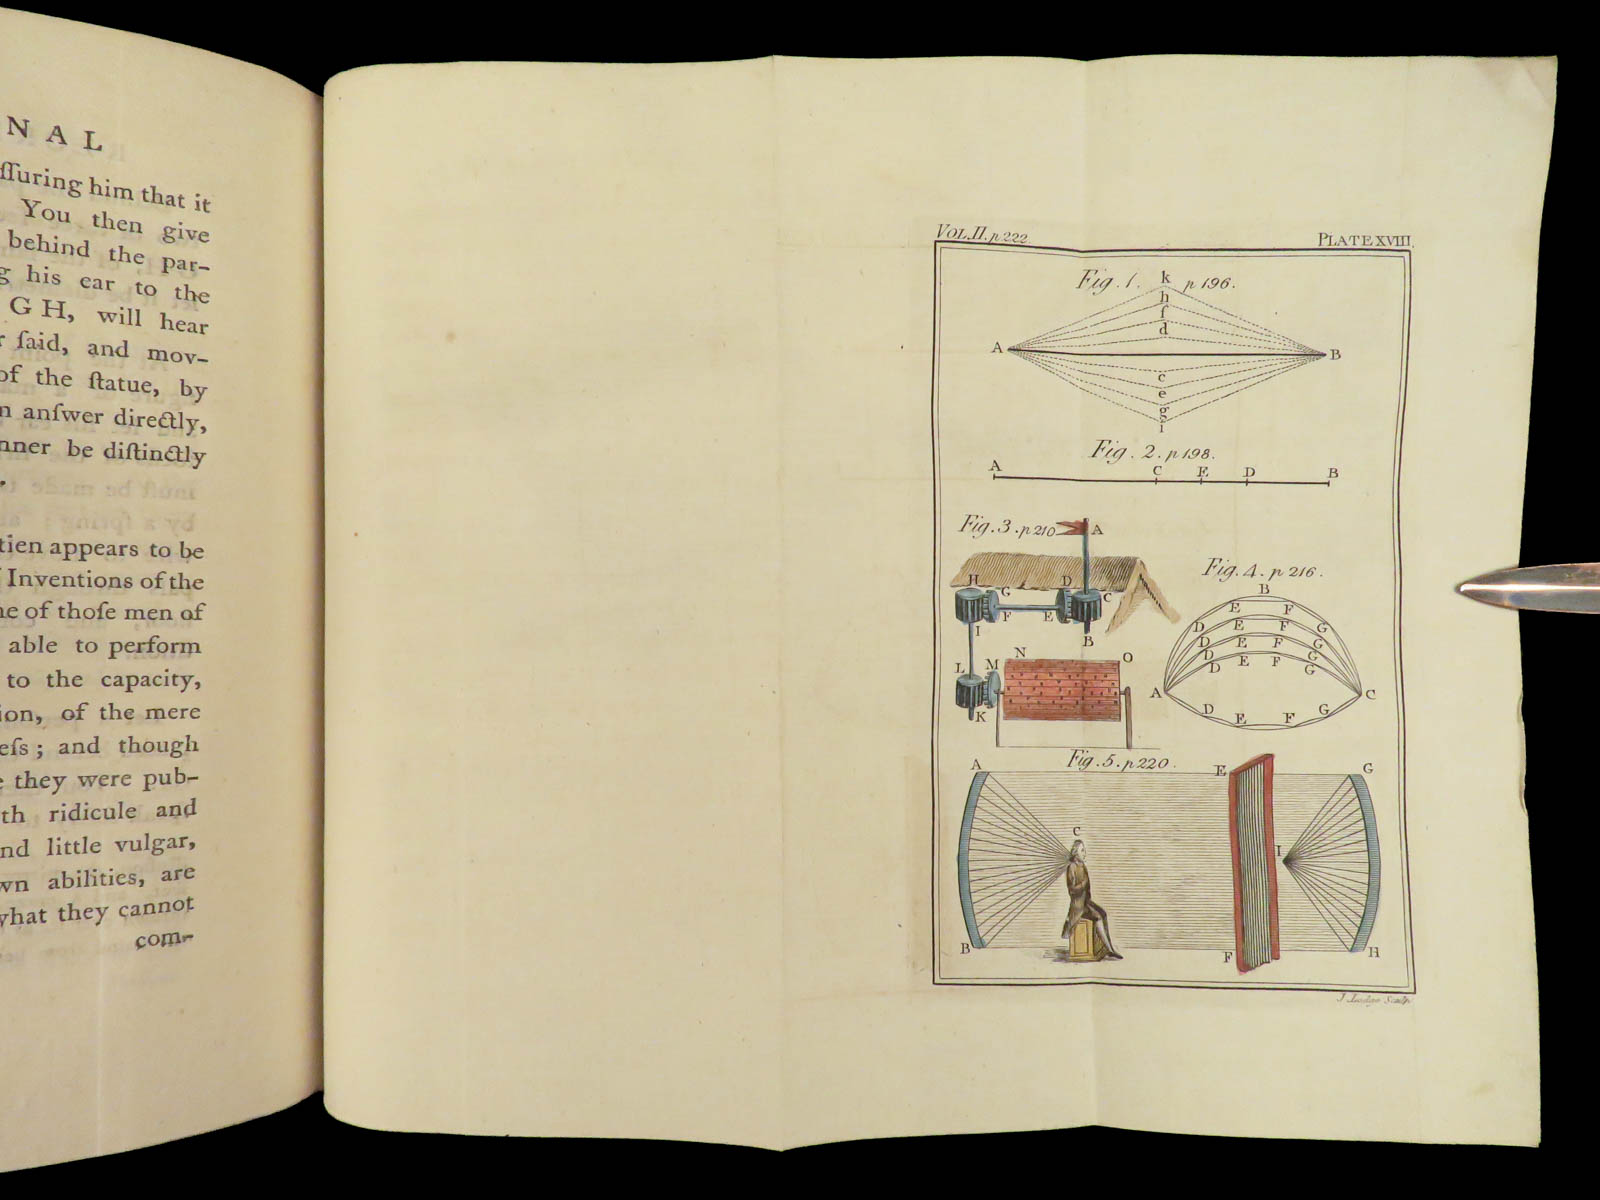 N A L
ſſuring him that it
You then give
behind the par-
g his ear to the
G H, will hear
r ſaid, and mov-
of the ſtatue, by
n anſwer directly,
nner be diſtinctly
tien appears to be
Inventions of the
ne of thoſe men of
able to perform
to the capacity,
ion, of the mere
eſs; and though
e they were pub-
th ridicule and
nd little vulgar,
wn abilities, are
what they cannot
com-
VOL.II.p222.
PLATE XVIII.
Fig. 1. p 196.
k
h
f
d
A B
c
e
g
i
Fig. 2. p 198.
A C E D B
Fig. 3. p 210
A
H G D C
I F E B
L M N O
K
Fig. 4. p 216.
B
E F
D E F G
D E F G
D E F G
D G
A C
D E F G
Fig. 5. p 220.
A E G
C I
B F H
J. Lodge Sculp